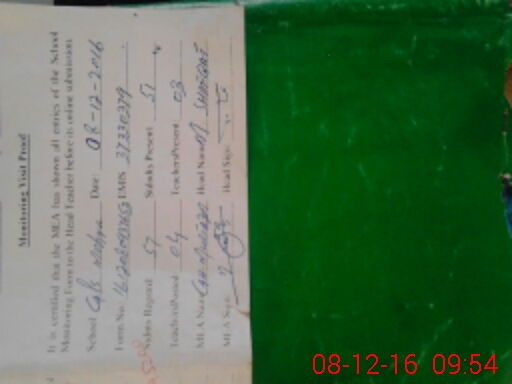 Monitoring Visit Proof
It is certified that the MEA has shown all entries of the School
Monitoring Form to the Head Teacher before its online submission.
School GPS Date: 08-12-2016
Form No. EMIS 37230279
Stdnts Regstrd 57 Stdnts Present 51
TeachersPosted 04 TeachersPresent 03
MEA Name Head Name M
MEA Sign: Head Sign:
08-12-16 09:54